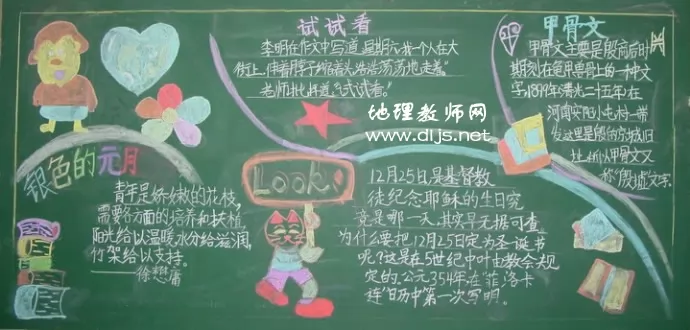 试试看
李明在作文中写道,星期六我一个人在大
街上,伸着脖子缩着头,浩浩荡荡地走着。"
老师批道"试试看。"
甲骨文
甲骨文主要是殷商后时
期刻在龟甲兽骨上的一种文
字,1899年清光二十五年在
河南安阳小屯村一带
发这里是殷的京城旧
址,所以甲骨文又
称"殷墟"文字.
地理教师网
www.dljs.net
银色的元月
青年是娇嫩的花枝,
需要各方面的培养和扶植,
阳光给以温暖,水分给滋润,
竹架给以支持。
——徐懋庸
Look!
12月25日是基督教
徒纪念耶稣的生日究
竟是哪一天,其实早无据可查。
为什么要把12月25日定为圣诞节
呢?这是在5世纪中叶由教会规
定的。公元354年在"菲洛卡
连"日历中第一次写明。